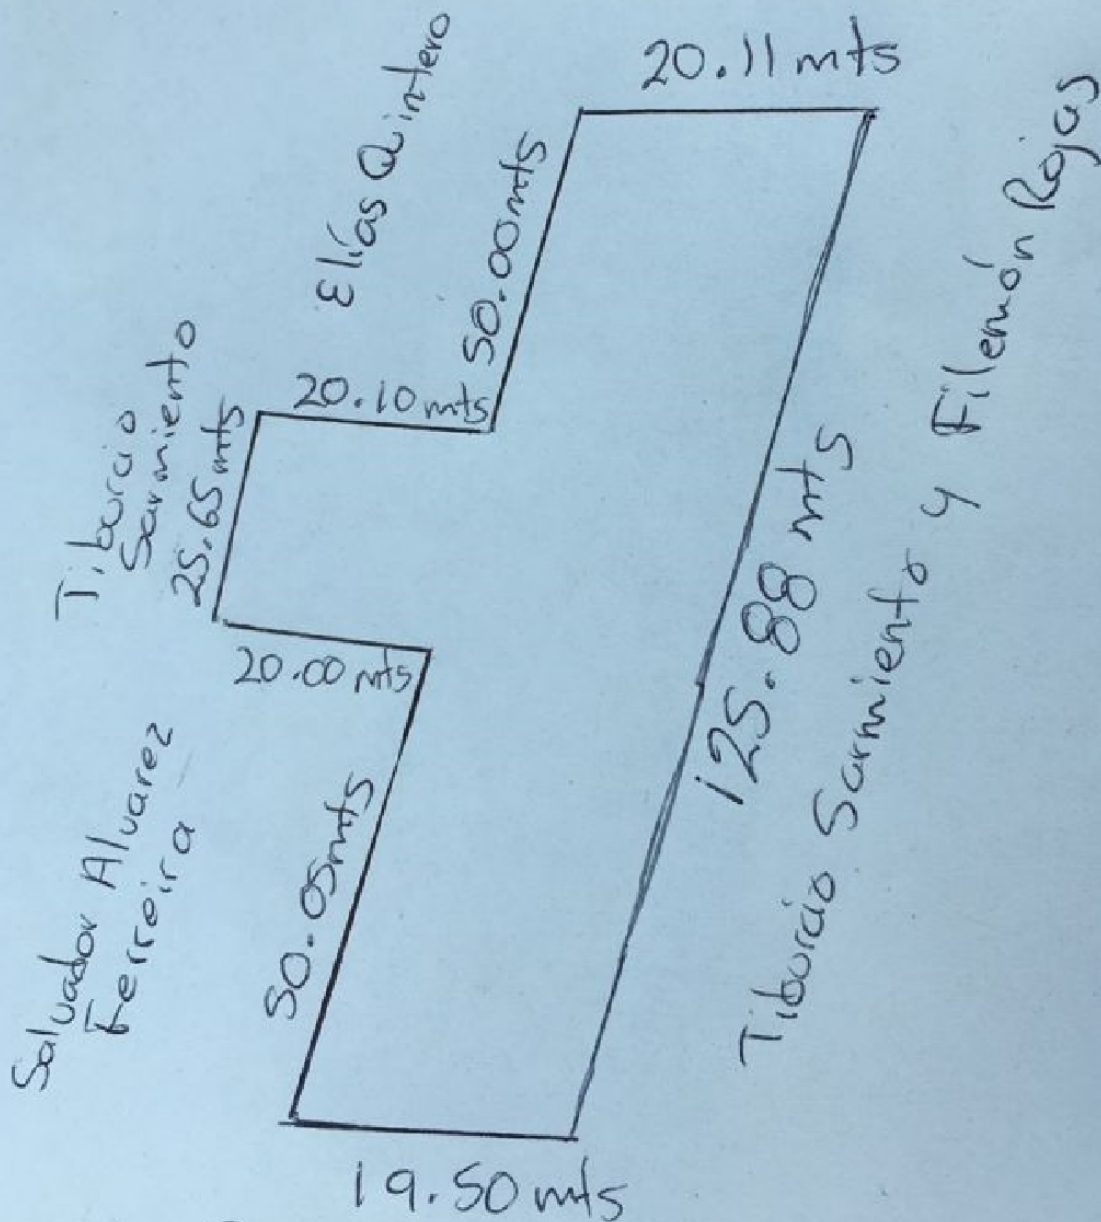 20.11 mts
Elías Quintero
50.00 mts
20.10 mts
Tiburcio
Sarmiento
25.65 mts
20.00 mts
Salvador Alvarez
Ferreira
50.05 mts
125.88 mts
Tiburcio Sarmiento y Filemón Rojas
19.50 mts